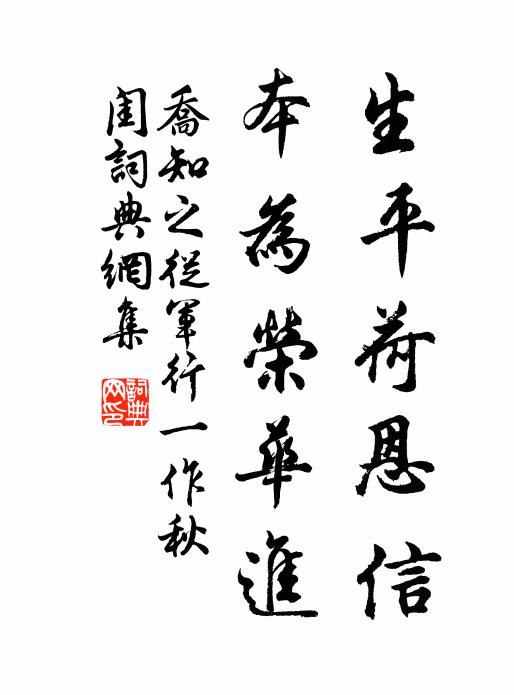 生平荷恩信
本為榮華進
喬知之從軍行一作秋
閨詞典網集
詞典
网印